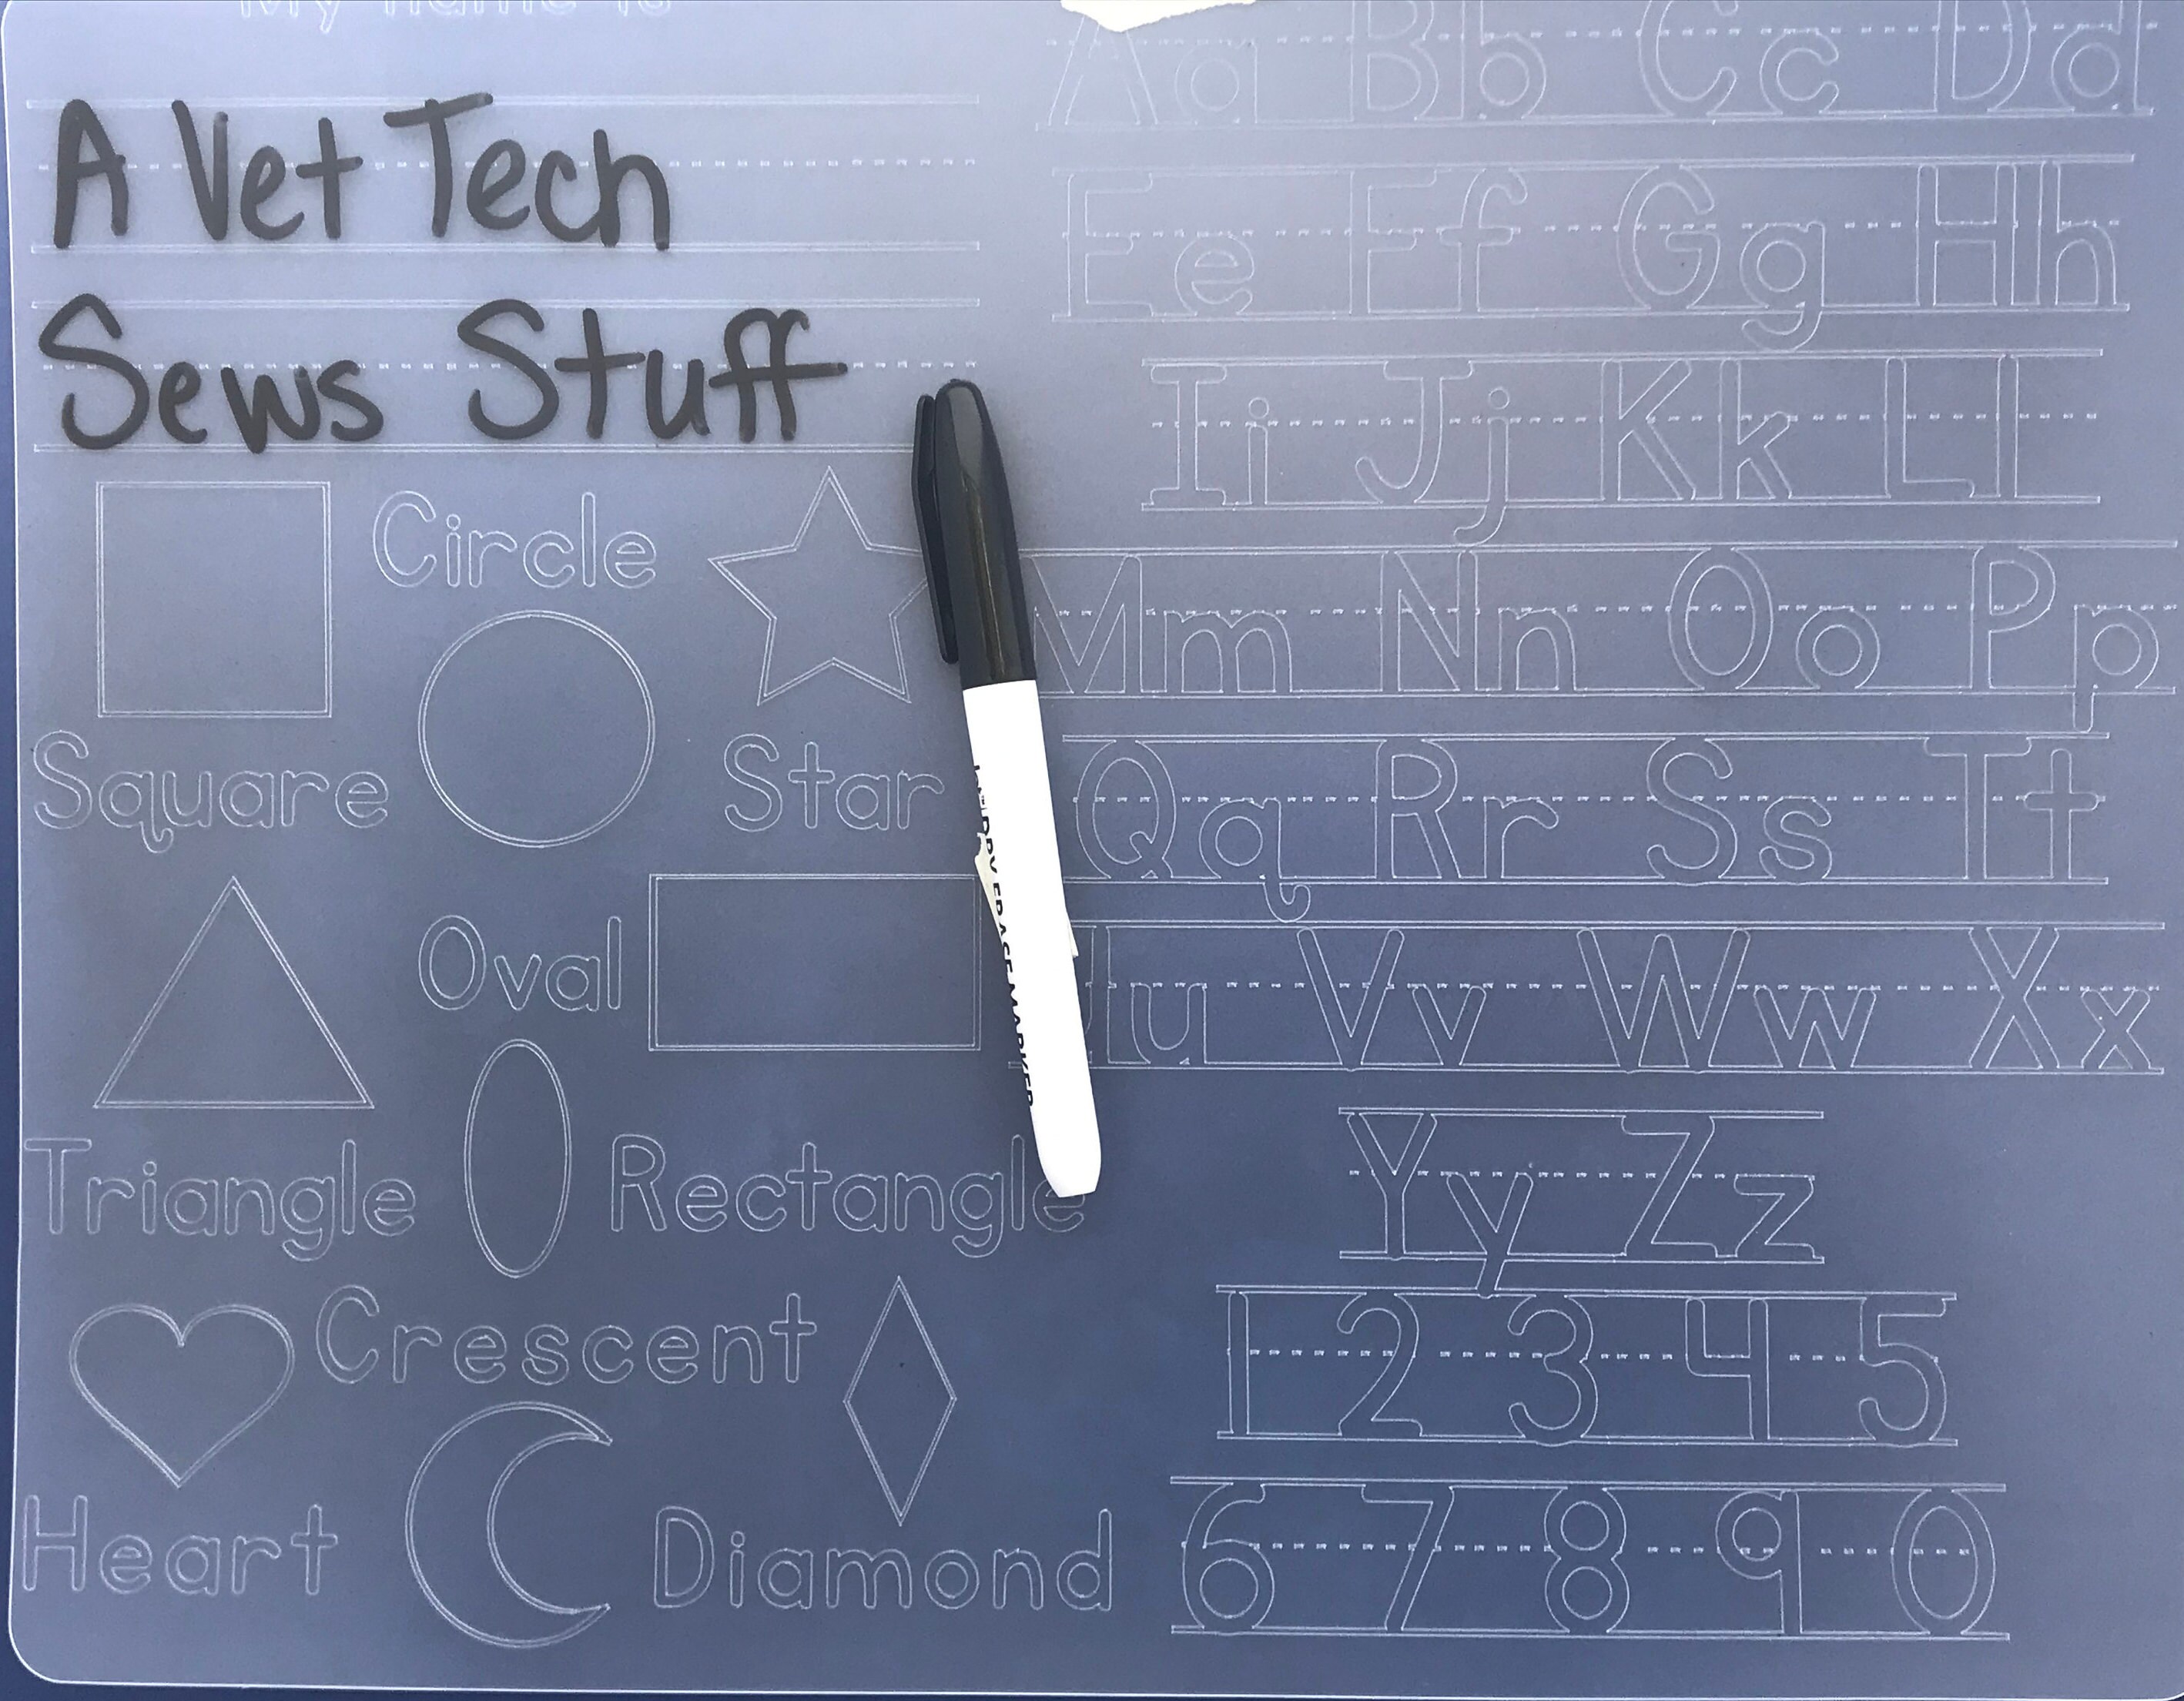 My name is
A Vet Tech
Sews Stuff
Circle
Square
Star
Oval
Triangle
Rectangle
Crescent
Heart
Diamond
Aa Bb Cc Dd
Ee Ff Gg Hh
Ii Jj Kk Ll
Mm Nn Oo Pp
Qq Rr Ss Tt
Uu Vv Ww Xx
Yy Zz
1 2 3 4 5
6 7 8 9 0
DRY ERASE MARKER